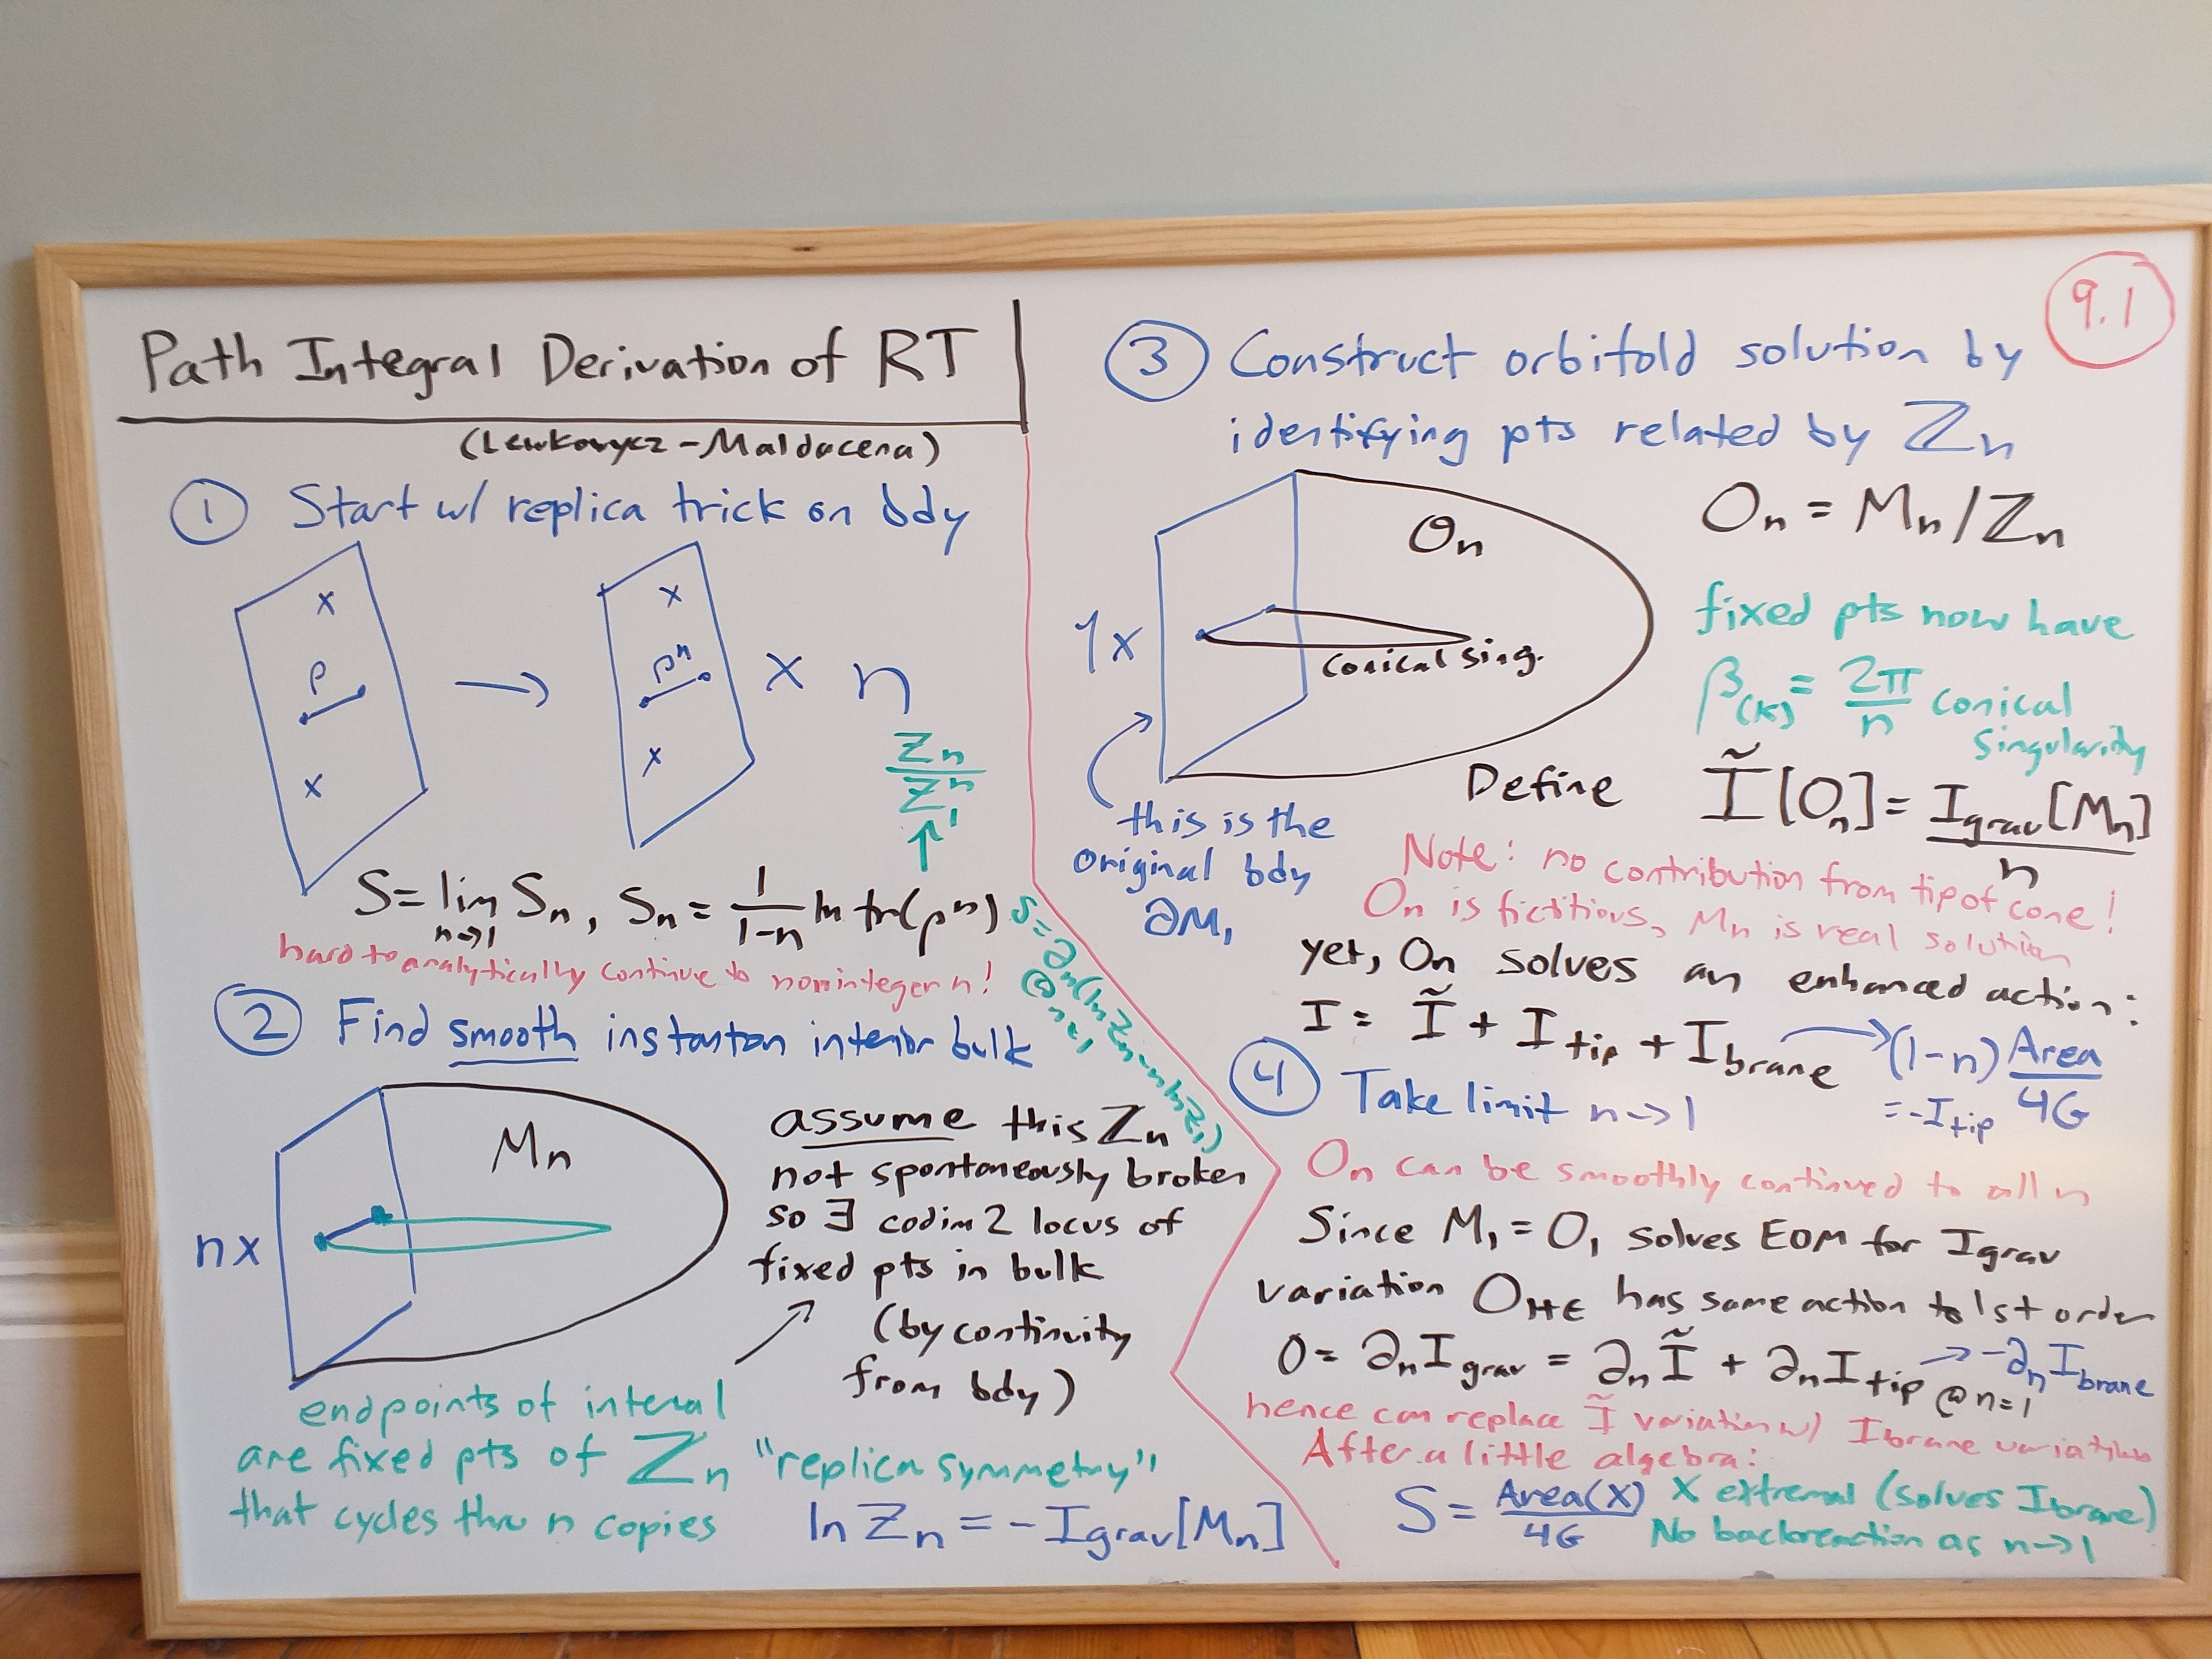 Path Integral Derivation of RT
(Lewkowycz-Maldacena)
① Start w/ replica trick on bdy
x
ρ
x
→
x
ρⁿ
x
x n
Zₙ / Z₁ⁿ
↑
S = lim n→1 Sₙ, Sₙ = 1/(1-n) ln tr(ρⁿ)
hard to analytically continue to noninteger n!
S = ∂ₙ(ln Zₙ - n ln Z₁)
@ n=1
② Find smooth instanton interior bulk
nx
Mₙ
assume this Zₙ
not spontaneously broken
so ∃ codim 2 locus of
fixed pts in bulk
(by continuity
from bdy)
endpoints of interval
are fixed pts of ℤₙ "replica symmetry"
that cycles thru n copies
ln Zₙ = - I_grav[Mₙ]
9.1
③ Construct orbifold solution by
identifying pts related by ℤₙ
1x
Oₙ
Conical Sing.
Oₙ = Mₙ/ℤₙ
fixed pts now have
β(κ) = 2π/n conical
singularity
this is the
original bdy
∂M₁
Define Ĩ[Oₙ] = I_grav[Mₙ] / n
Note: no contribution from tip of cone!
Oₙ is fictitious, Mₙ is real solution
yet, Oₙ solves an enhanced action:
I = Ĩ + I_tip + I_brane → (1-n) Area / 4G
= -I_tip
④ Take limit n→1
Oₙ can be smoothly continued to all n
Since M₁ = O₁ solves EOM for I_grav
variation O₁₊ε has same action to 1st order
0 = ∂ₙI_grav = ∂ₙĨ + ∂ₙI_tip @n=1 → -∂ₙI_brane
hence can replace Ĩ variation w/ I_brane variation
After a little algebra:
S = Area(X) / 4G X extremal (solves I_brane)
No backreaction as n→1